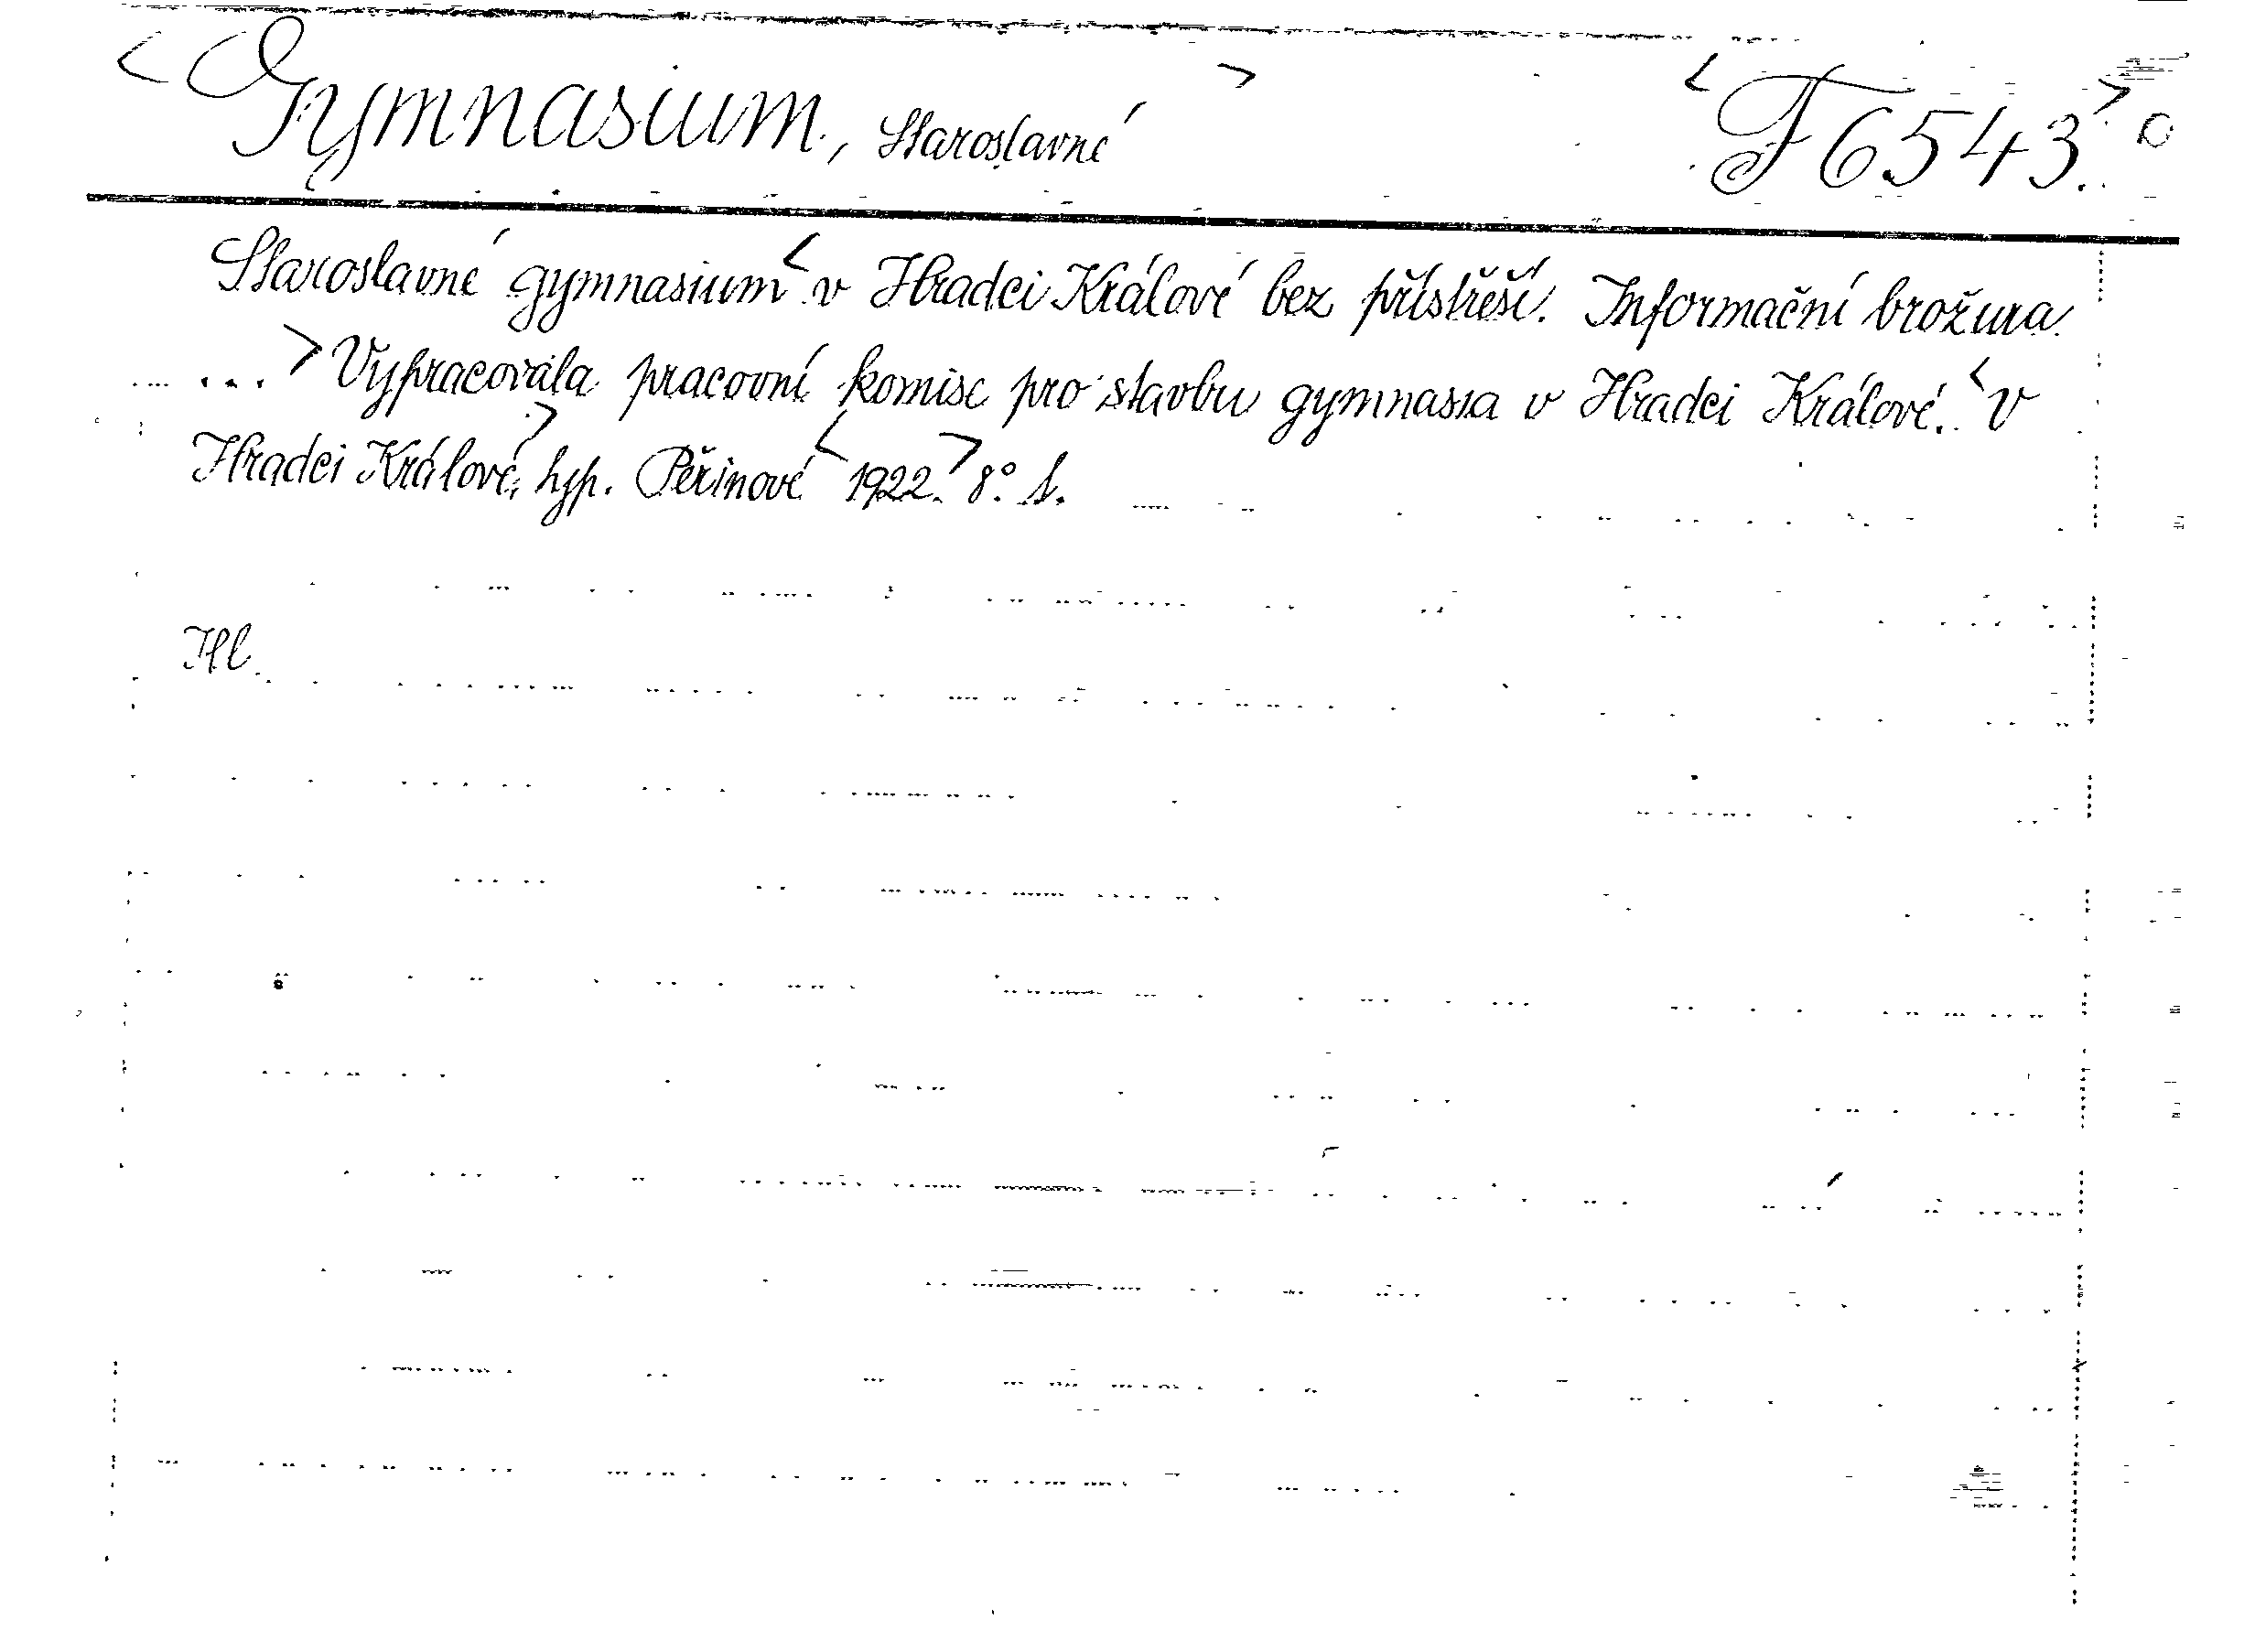 < Gymnasium, Staroslavné > < F 6543. >
Staroslavné gymnasium < v Hradci Králové bez přístřeší. Informační brožura.
... > Vypracovala pracovní komise pro stavbu gymnasia v Hradci Králové. < V
Hradci Králové, > hyp. Peřinové < 1922. > 8°. 1.
Hl